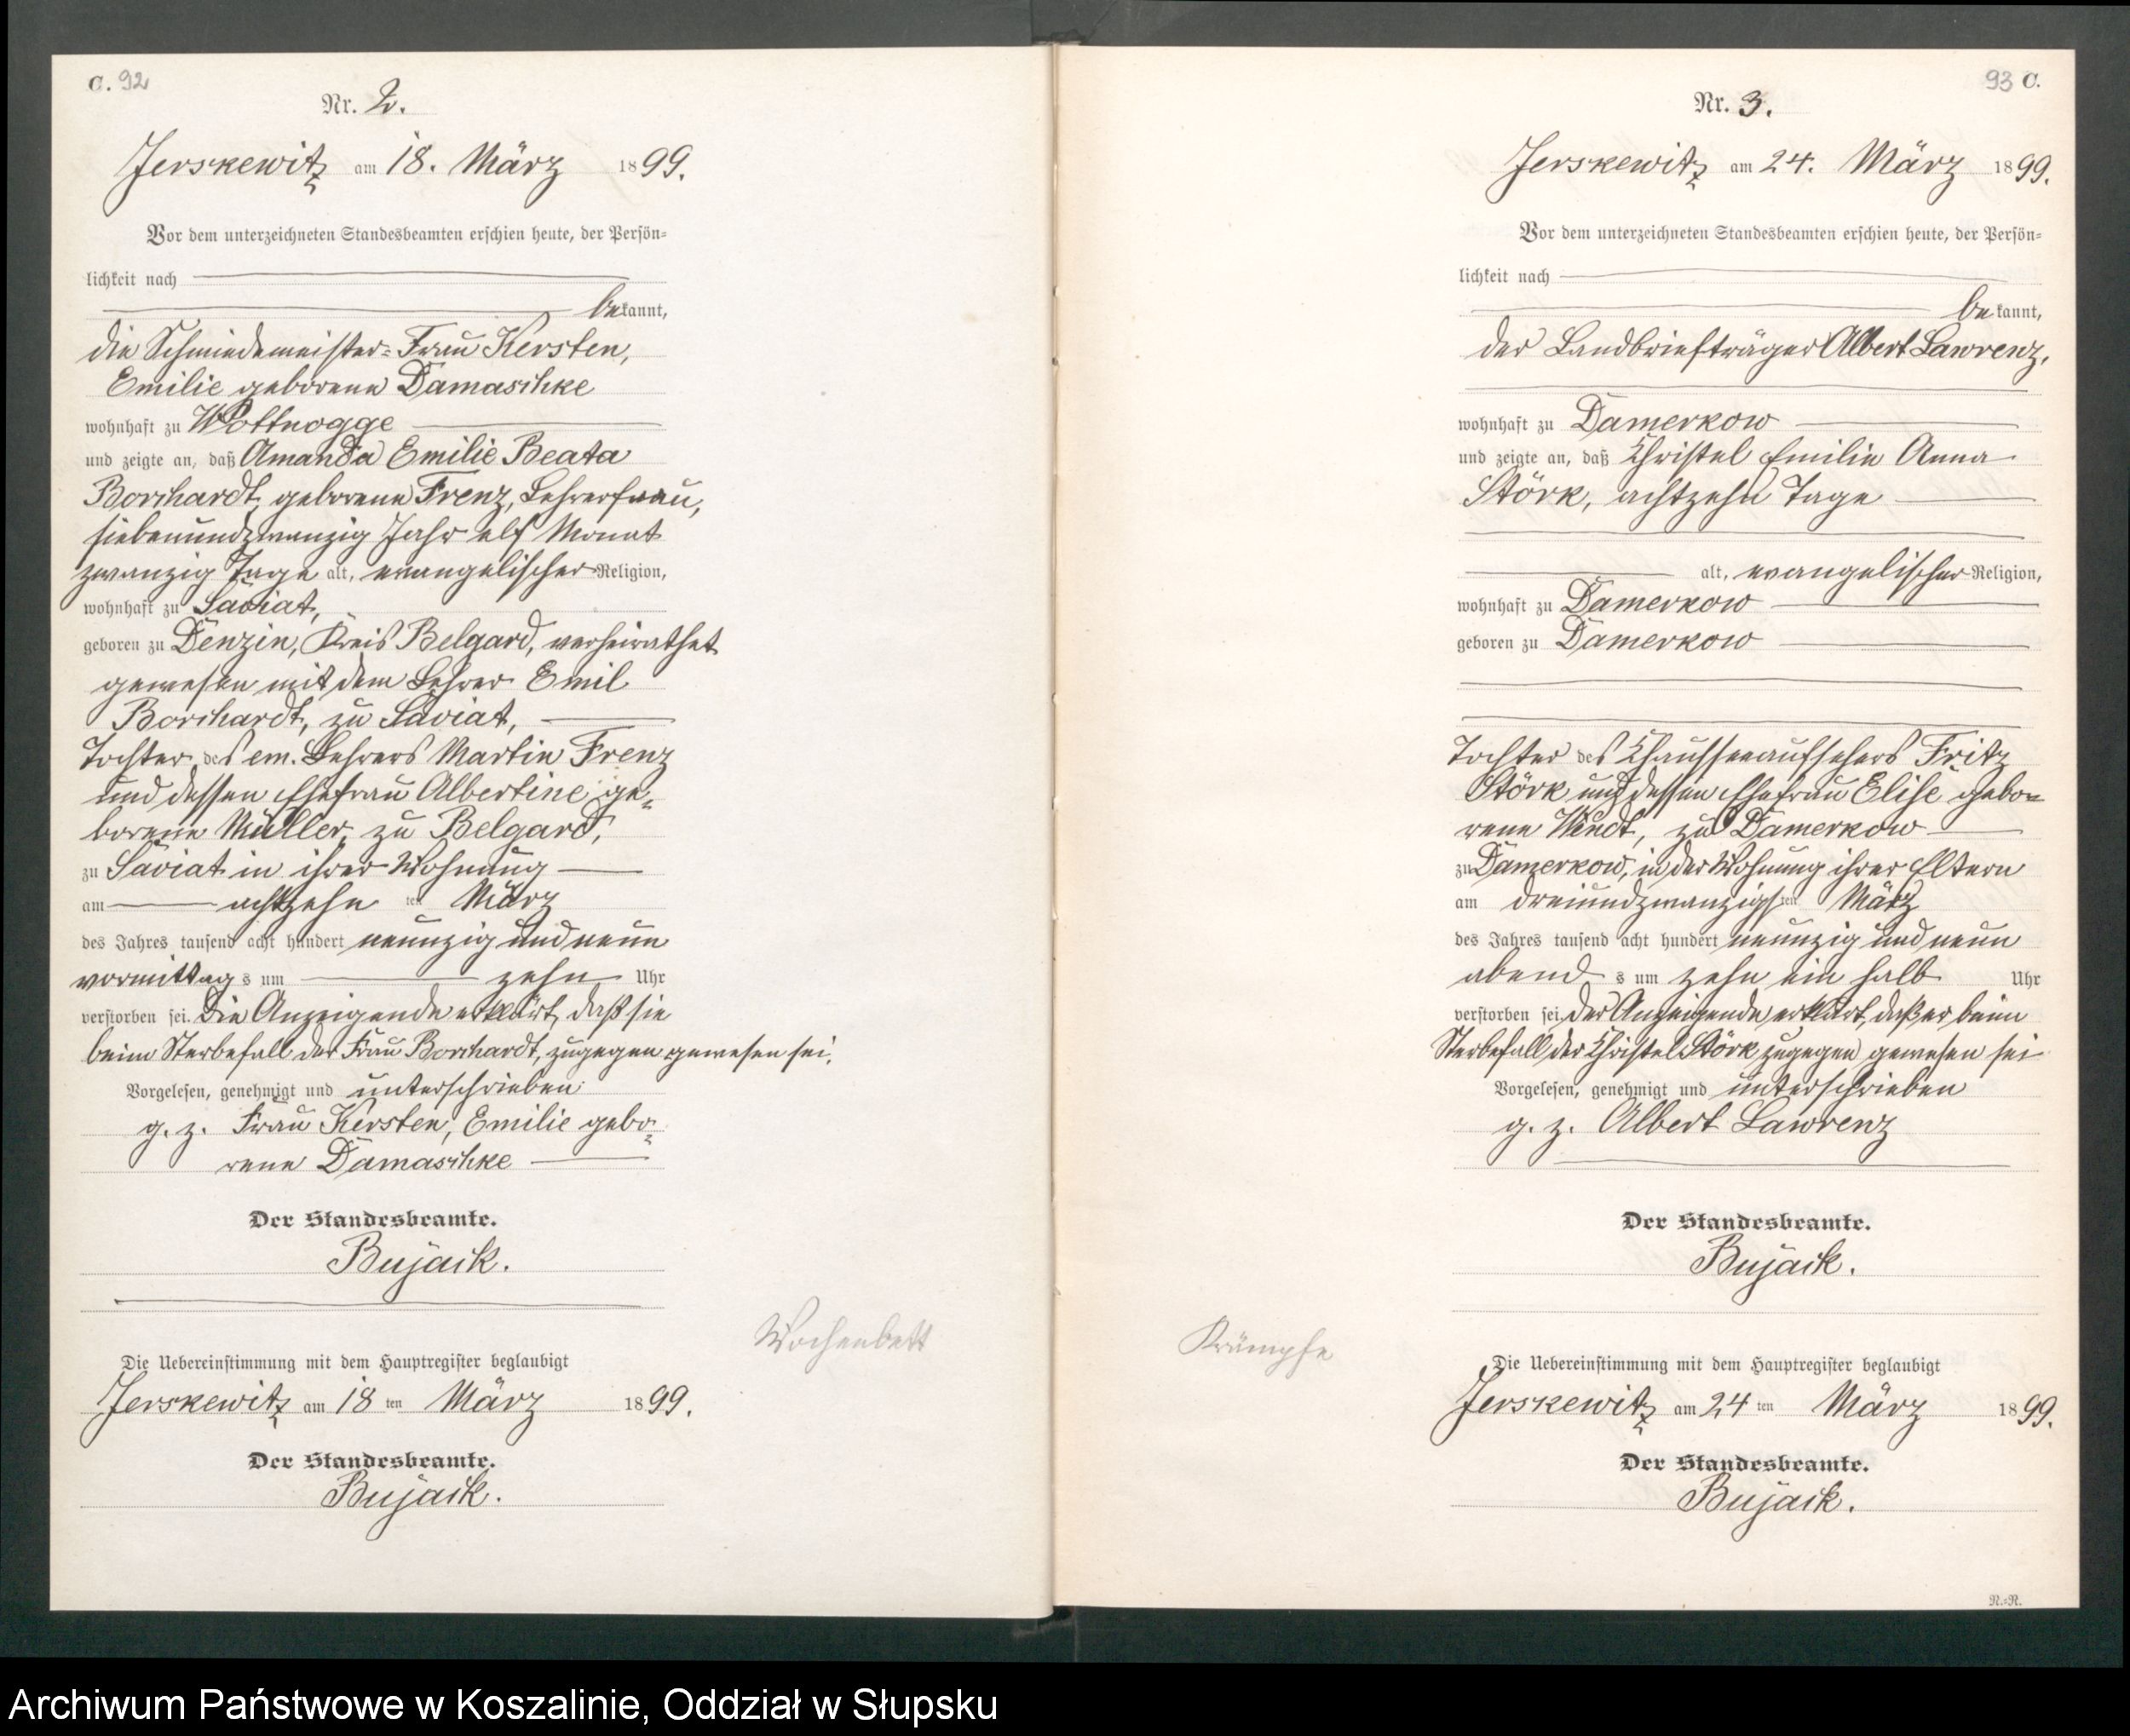 C. 92
Nr. 2.
Jerskewitz am 18. März 1899.
Vor dem unterzeichneten Standesbeamten erschien heute, der Persön=
lichkeit nach
bekannt,
die Schmiedemeister=Frau Kersten,
Emilie geborene Damaschke
wohnhaft zu Wottnogge
und zeigte an, daß Amanda Emilie Beata
Borchardt, geborene Frenz, Lehrerfrau,
siebenundzwanzig Jahr elf Monat
zwanzig Tage alt, evangelischer Religion,
wohnhaft zu Saviat,
geboren zu Denzin, Kreis Belgard, verheirathet
gewesen mit dem Lehrer Emil
Borchardt, zu Saviat,
Tochter des em. Lehrers Martin Frenz
und dessen Ehefrau Albertine ge=
borene Müller, zu Belgard,
zu Saviat in ihrer Wohnung
am achtzehn ten März
des Jahres tausend acht hundert neunzig und neun
vormittags um zehn Uhr
verstorben sei. Die Anzeigende erklärt, daß sie
beim Sterbefall der Frau Borchardt, zugegen gewesen sei.
Vorgelesen, genehmigt und unterschrieben
g. z. Frau Kersten, Emilie gebo=
rene Damaschke
Der Standesbeamte.
Bujack.
Wochenbett
Die Uebereinstimmung mit dem Hauptregister beglaubigt
Jerskewitz am 18 ten März 1899.
Der Standesbeamte.
Bujack.
93 C.
Nr. 3.
Jerskewitz am 24. März 1899.
Vor dem unterzeichneten Standesbeamten erschien heute, der Persön=
lichkeit nach
bekannt,
der Landbriefträger Albert Lawrenz,
wohnhaft zu Damerkow
und zeigte an, daß Christel Emilie Anna
Störk, achtzehn Tage
alt, evangelischer Religion,
wohnhaft zu Damerkow
geboren zu Damerkow
Tochter des Chausseeaufsehers Fritz
Störk und dessen Ehefrau Elise gebo=
rene Windt, zu Damerkow
zu Damerkow, in der Wohnung ihrer Eltern
am dreiundzwanzigsten März
des Jahres tausend acht hundert neunzig und neun
abends um zehn ein halb Uhr
verstorben sei. Der Anzeigende erklärt, daß er beim
Sterbefall der Christel Störk zugegen gewesen sei
Vorgelesen, genehmigt und unterschrieben
g. z. Albert Lawrenz
Der Standesbeamte.
Bujack.
Krämpfe
Die Uebereinstimmung mit dem Hauptregister beglaubigt
Jerskewitz am 24 ten März 1899.
Der Standesbeamte.
Bujack.
N.=N.
Archiwum Państwowe w Koszalinie, Oddział w Słupsku